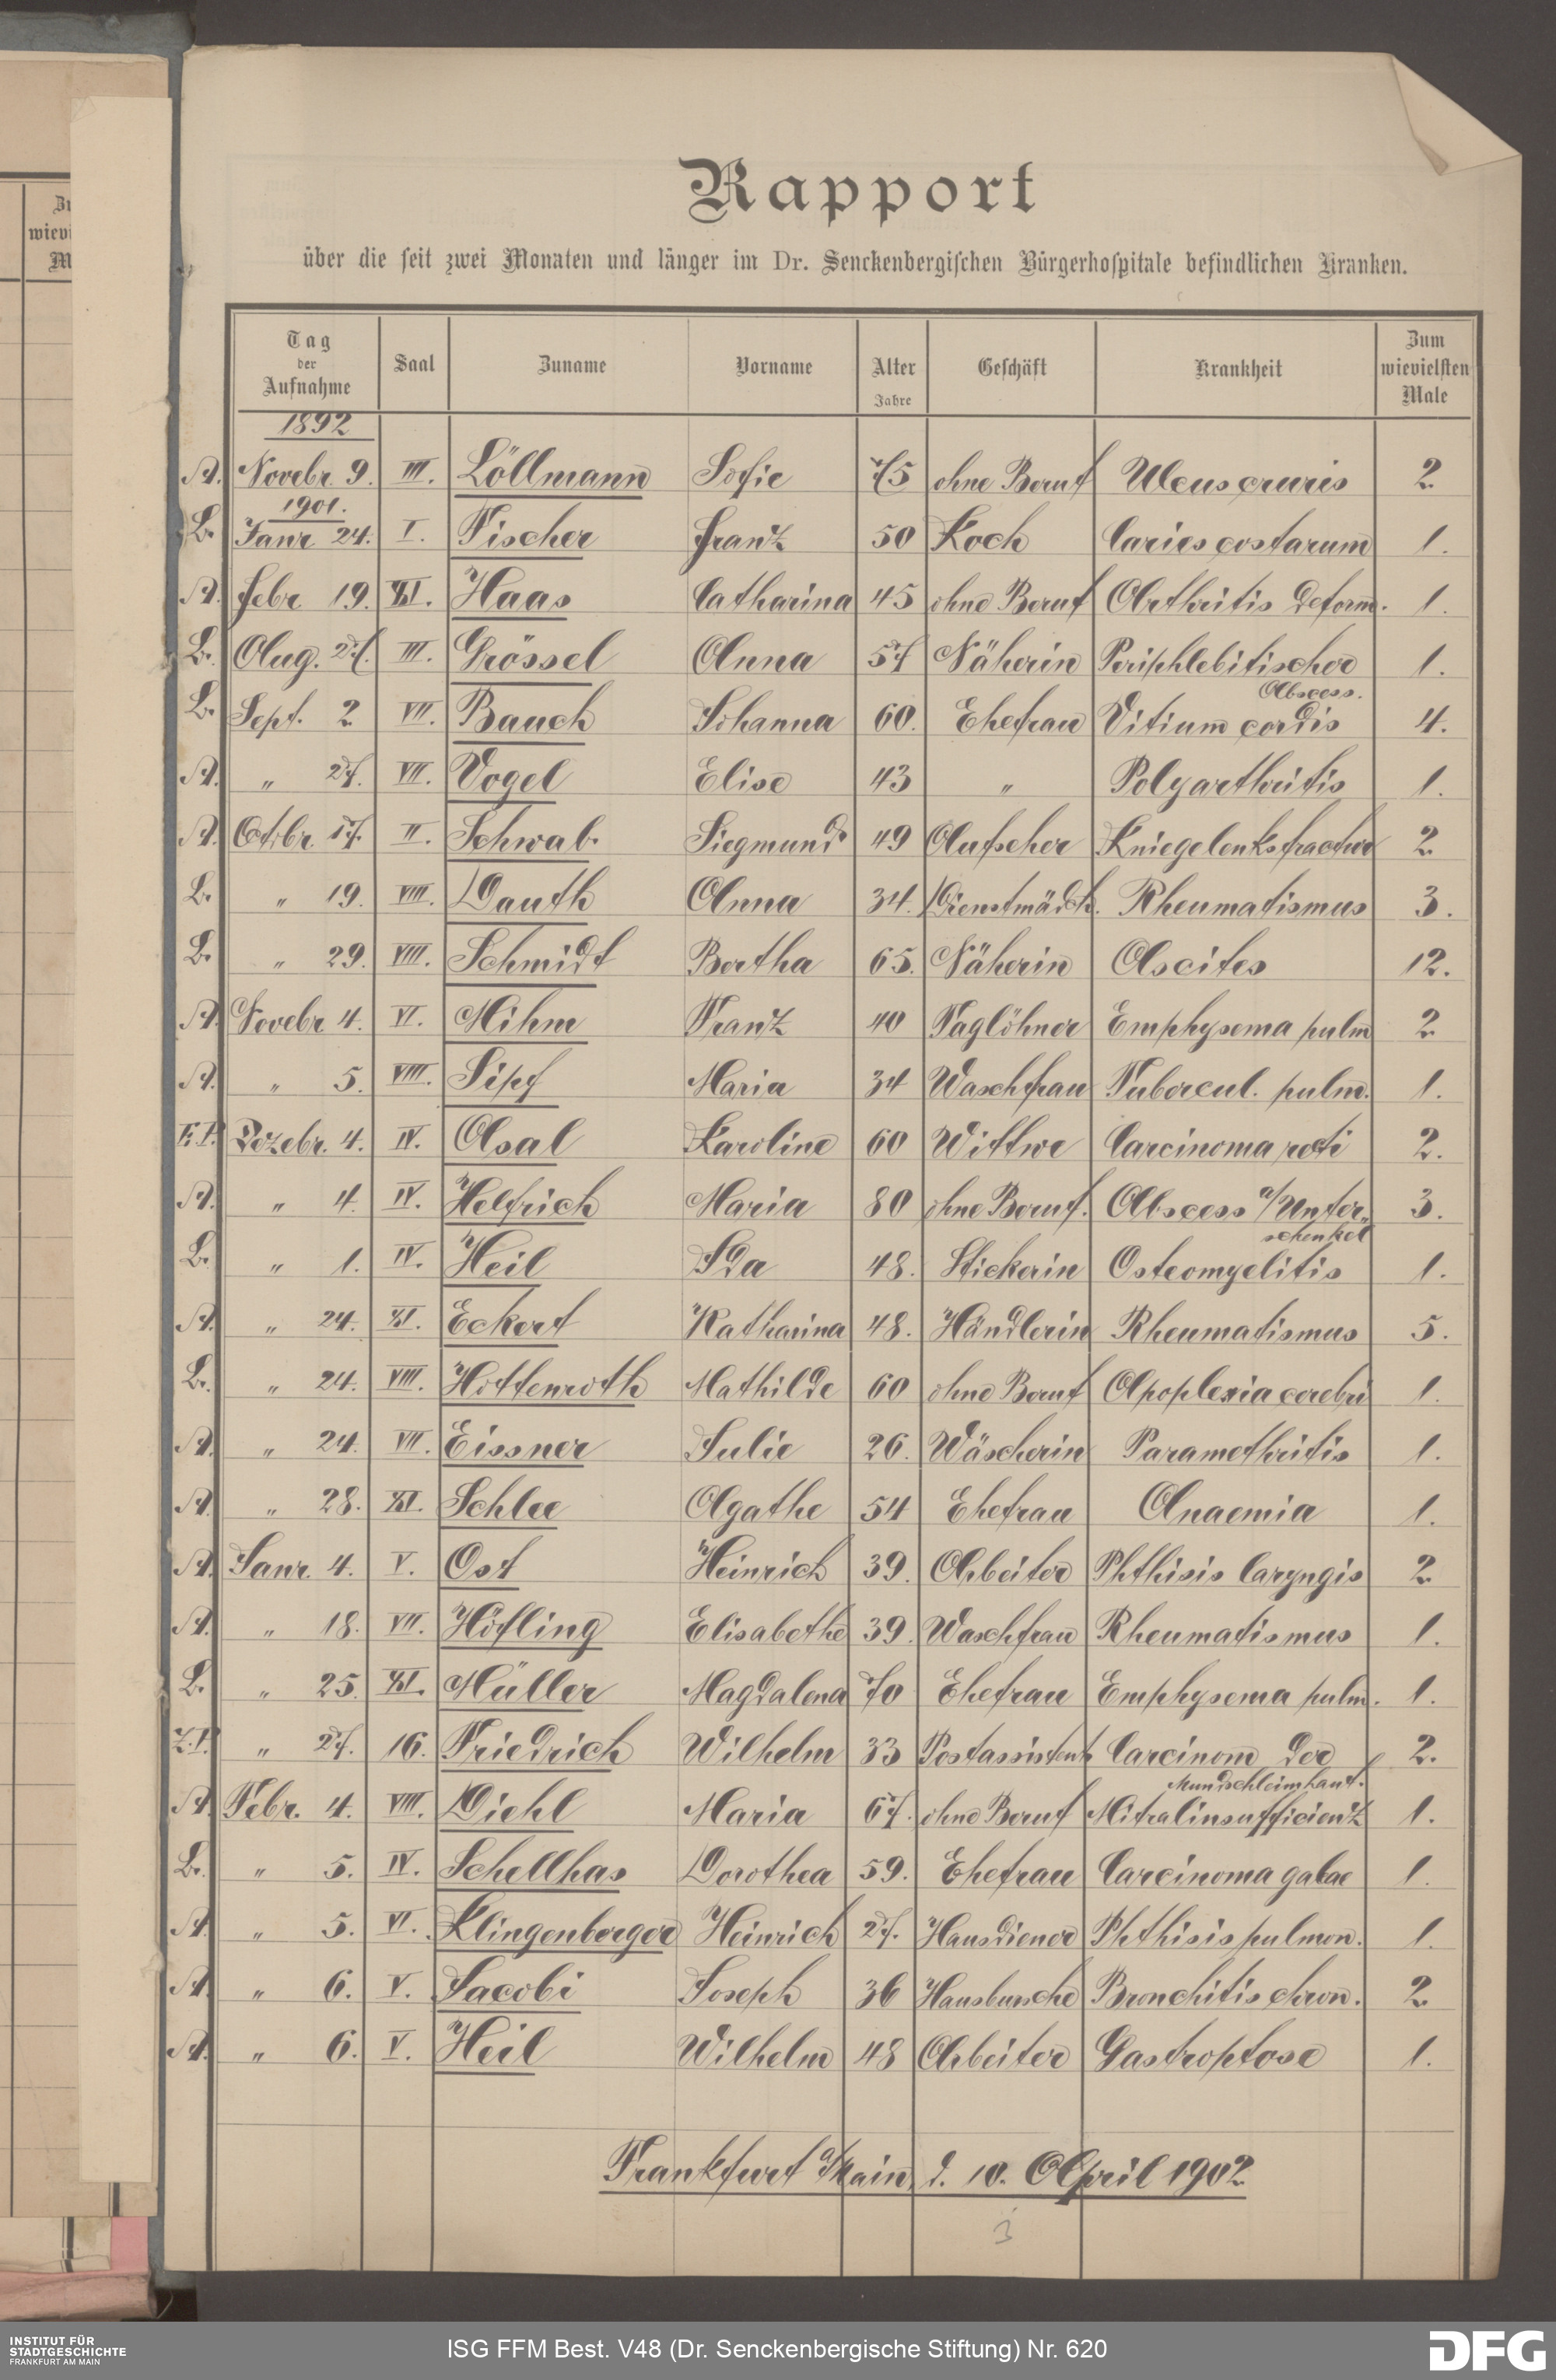 Zu
wievi
M
Rapport
über die seit zwei Monaten und länger im Dr. Senckenbergischen Bürgerhospitale befindlichen Kranken.
Tag der Aufnahme Saal Zuname Vorname Alter Jahre Geschäft Krankheit Zum wievielsten Male
1892
A. Novebr. 9. III. Löllmann Sofie 75 ohne Beruf Ulcus cruris 2
1901.
B. Janr 24. I. Fischer Franz 50 Koch Caries costarum 1.
A. Febr 19. XI. Haas Catharina 45 ohne Beruf Arthritis deform. 1.
B. Aug. 27. III. Grössel Anna 57 Näherin Periphlebitischer 1.
Abscess.
B. Sept. 2 VII. Bauch Johanna 60. Ehefrau Vitium cordis 4.
A. " 27. VII. Vogel Elise 43 " Polyarthritis 1.
A. Octbr. 17. II. Schwab. Siegmund 49 Aufseher Kniegelenksfractur 2
B. " 19. VIII. Dauth Anna 34. Dienstmädch. Rheumatismus 3.
B. " 29. VIII. Schmidt Bertha 65. Näherin Ascites 12.
A. Novebr. 4. VI. Mihm Franz 40 Taglöhner Emphysema pulm 2
A. " 5. VIII. Sipf Maria 34 Waschfrau Tubercul. pulm. 1.
F.P. Dezebr. 4. IV. Asal Karoline 60 Wittwe Carcinoma recti 2.
A. " 4. IV. Helfrich Maria 80 ohne Beruf. Abscess a/Unter„ 3.
schenkel
B. " 1. IV. Heil Ida 48. Stickerin Osteomyelitis 1.
A. " 24. XI. Eckert Katharina 48. Händlerin Rheumatismus 5.
B. " 24. VIII. Hottenroth Mathilde 60 ohne Beruf Apoplexia cerebri 1.
A. " 24. VII. Eissner Julie 26. Wäscherin Paramethritis 1.
A. " 28. XI. Schlee Agathe 54 Ehefrau Anaemia 1.
A. Janr. 4. V. Ost Heinrich 39. Arbeiter Phthisis laryngis 2
A. " 18. VII. Höfling Elisabethe 39. Waschfrau Rheumatismus 1.
B. " 25. XI. Müller Magdalena 70 Ehefrau Emphysema pulm. 1.
Z.P. " 27. 16. Friedrich Wilhelm 33 Postassistent Carcinom der 2.
Mundschleimhaut.
A. Febr. 4. VIII. Diehl Maria 67. ohne Beruf Mitralinsufficienz 1.
B. " 5. IV. Schellhas Dorothea 59. Ehefrau Carcinoma galae 1.
A. " 5. VI. Klingenberger Heinrich 27. Hausdiener Phthisis pulmon. 1.
A. " 6. V. Jacobi Joseph 36 Hausbursche Bronchitis chron. 2
A. " 6. V. Heil Wilhelm 48 Arbeiter Gastroptose 1.
Frankfurt a/Main, d. 10. April 1902
3
INSTITUT FÜR
STADTGESCHICHTE
FRANKFURT AM MAIN
ISG FFM Best. V48 (Dr. Senckenbergische Stiftung) Nr. 620
DFG